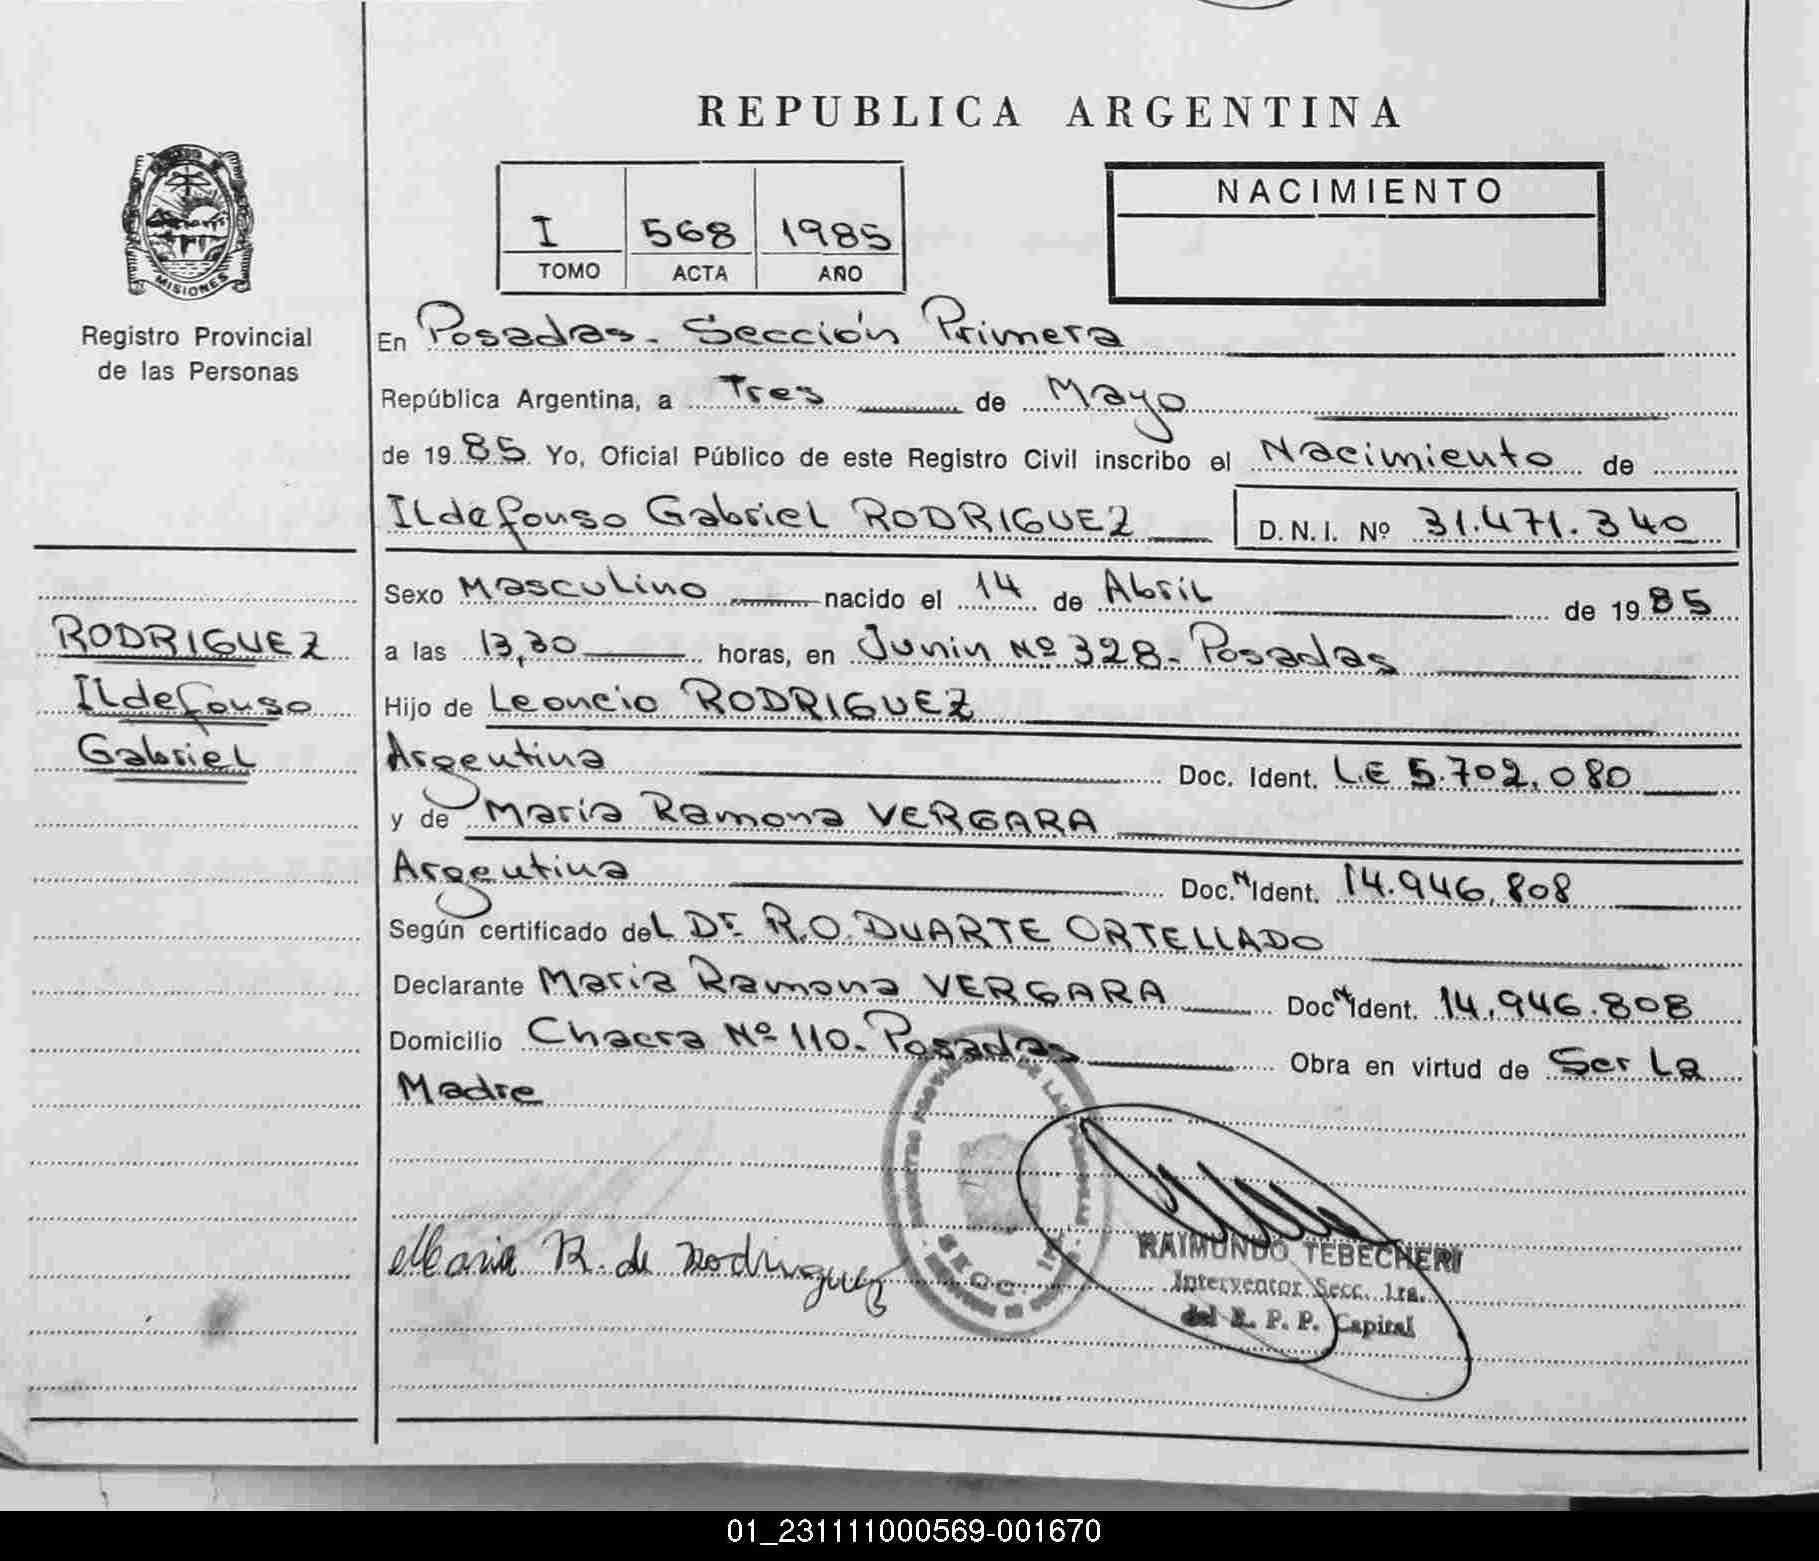 REPUBLICA ARGENTINA
MISIONES
Registro Provincial
de las Personas
I 568 1985
TOMO ACTA AÑO
NACIMIENTO
En Posadas. Sección Primera
República Argentina, a Tres de Mayo
de 1985 Yo, Oficial Público de este Registro Civil inscribo el Nacimiento de
ILdefonso Gabriel RODRIGUEZ D.N.I. Nº 31.471.340
RODRIGUEZ
ILdefonso
Gabriel
Sexo Masculino nacido el 14 de Abril de 1985
a las 13,30 horas, en Junin Nº 328. Posadas
Hijo de Leoncio RODRIGUEZ
Argentina Doc. Ident. L.E 5.702.080
y de María Ramona VERGARA
Argentina Doc. N Ident. 14.946.808
Según certificado del Dr. R.O. DUARTE ORTELLADO
Declarante María Ramona VERGARA Doc N Ident. 14.946.808
Domicilio Chacra Nº 110. Posadas Obra en virtud de Ser La
Madre
Maria R. de Rodriguez
SECC. 1ra.
RAIMUNDO TEBECHERI
Interventor Secc. 1ra.
del R. P. P. Capital
01_231111000569-001670